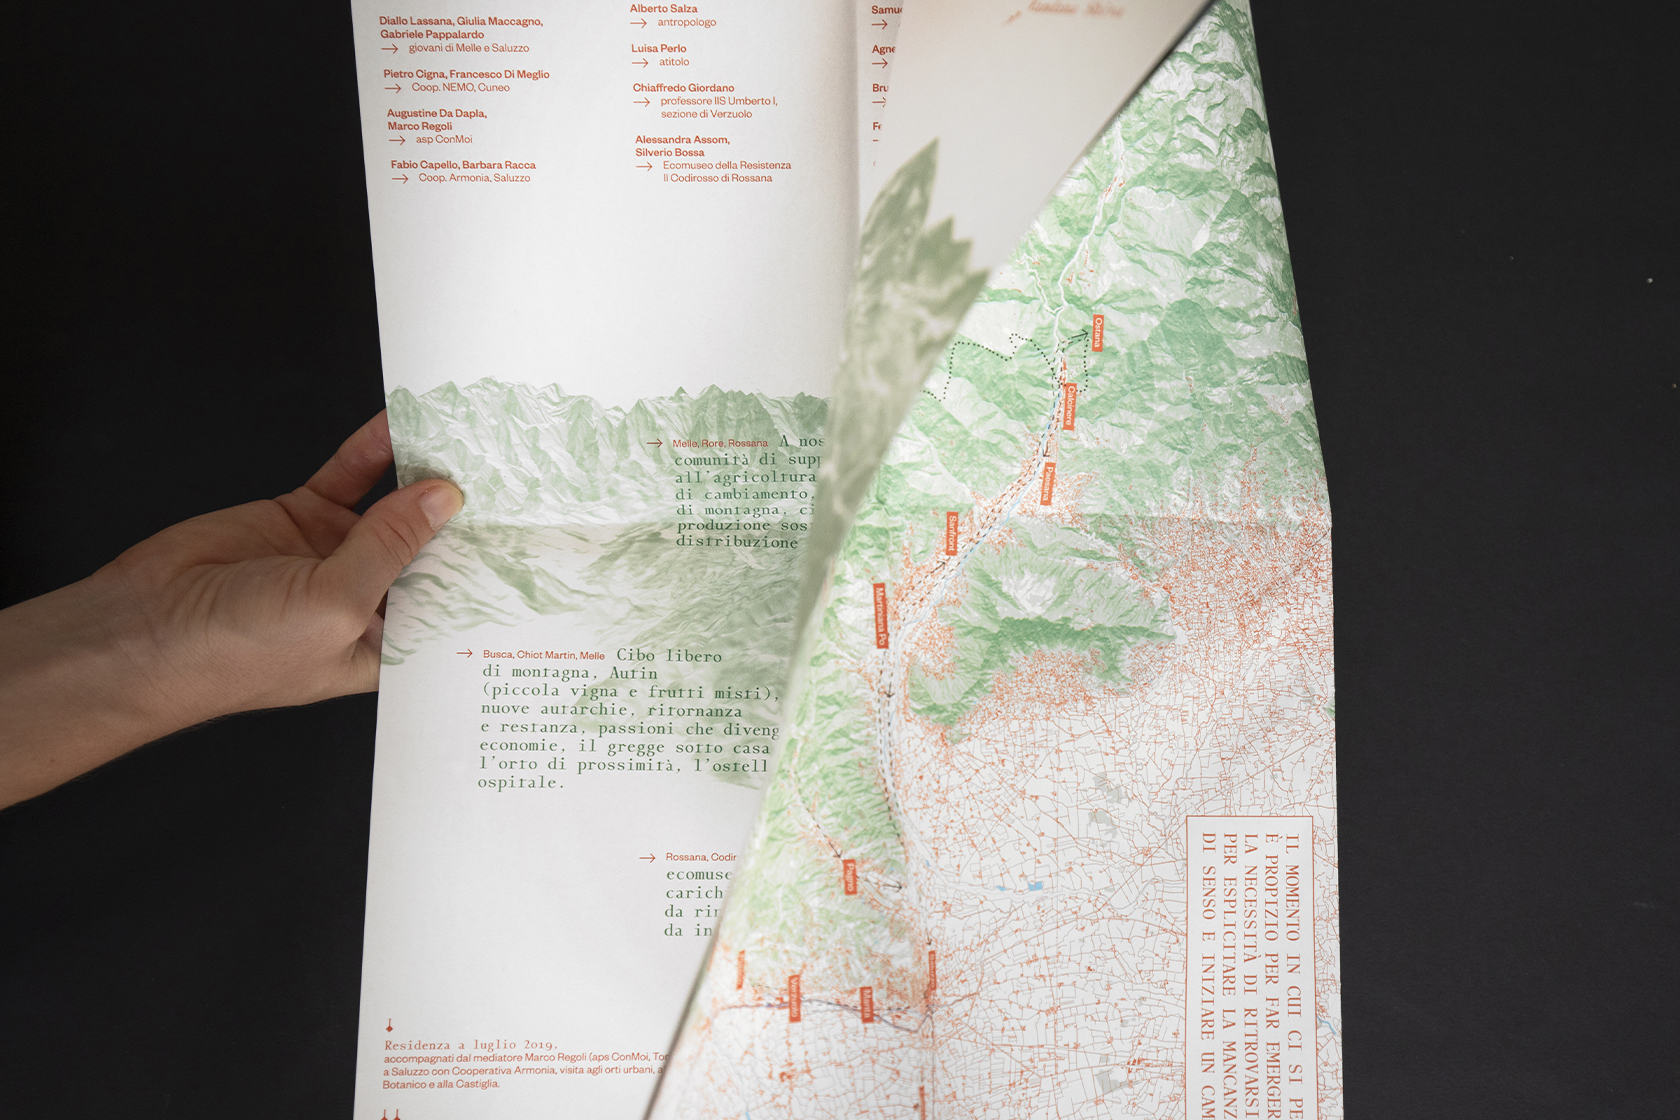 Diallo Lassana, Giulia Maccagno,
Gabriele Pappalardo
→ giovani di Melle e Saluzzo
Pietro Cigna, Francesco Di Meglio
→ Coop. NEMO, Cuneo
Augustine Da Dapla,
Marco Regoli
→ asp ConMoi
Fabio Capello, Barbara Racca
→ Coop. Armonia, Saluzzo
Alberto Salza
→ antropologo
Luisa Perlo
→ atitolo
Chiaffredo Giordano
→ professore IIS Umberto I,
sezione di Verzuolo
Alessandra Assom,
Silverio Bossa
→ Ecomuseo della Resistenza
Il Codirosso di Rossana
Samu
Agne
Bru
→ Melle, Rore, Rossana A nos
comunità di supp
all'agricoltura
di cambiamento,
di montagna, ci
produzione sos
distribuzione
→ Busca, Chiot Martin, Melle Cibo libero
di montagna, Autin
(piccola vigna e frutti misti),
nuove autarchie, ritornanza
e restanza, passioni che diveng
economie, il gregge sotto casa
l'orto di prossimità, l'ostell
ospitale.
→ Rossana, Codir
ecomuse
carich
da rir
da in
Residenza a luglio 2019,
accompagnati dal mediatore Marco Regoli (aps ConMoi, Tor
a Saluzzo con Cooperativa Armonia, visita agli orti urbani, a
Botanico e alla Castiglia.
Ostana
Calcinere
Paesana
Sanfront
Martiniana Po
Pagno
Verzuolo
Manta
IL MOMENTO IN CUI CI SI PE
È PROPIZIO PER FAR EMERGER
LA NECESSITÀ DI RITROVARSI
PER ESPLICITARE LA MANCANZ
DI SENSO E INIZIARE UN CAM